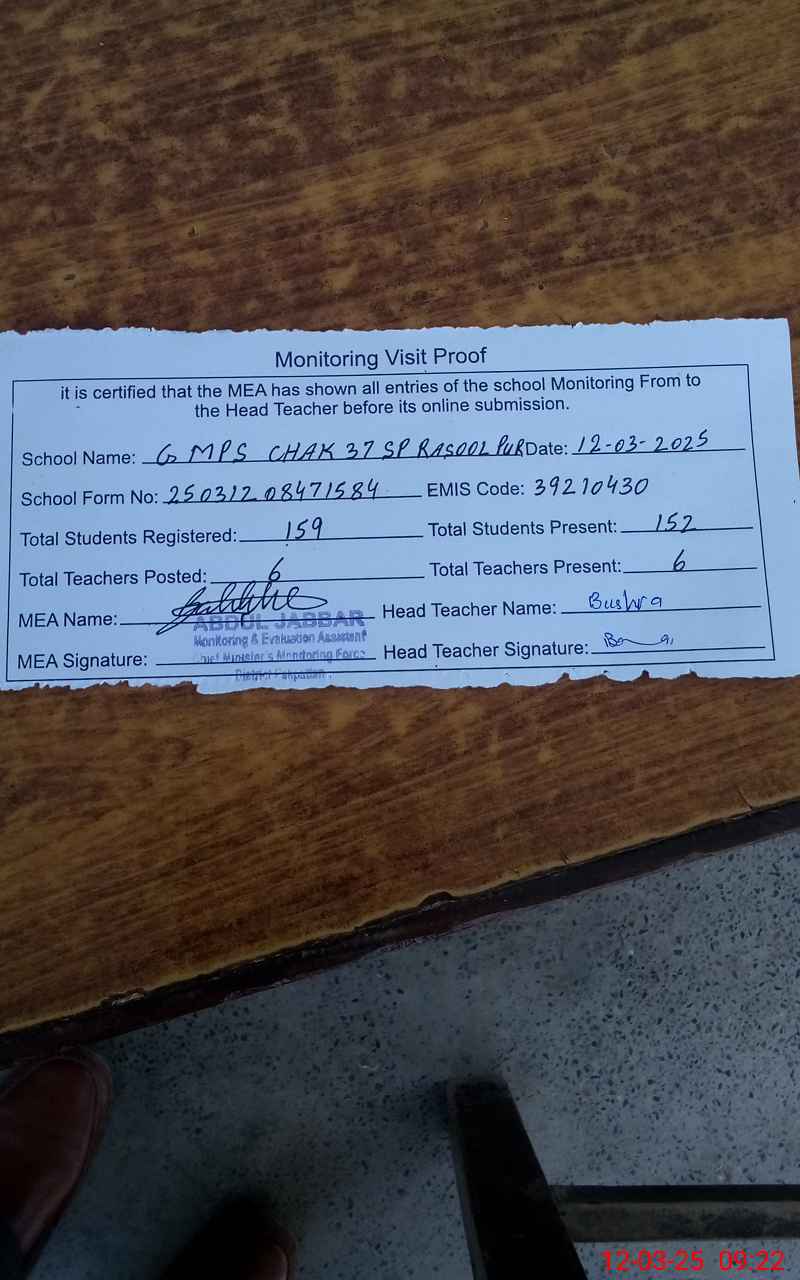 Monitoring Visit Proof
it is certified that the MEA has shown all entries of the school Monitoring From to
the Head Teacher before its online submission.
School Name: G MPS CHAK 37 SP RASOOL PUR Date: 12-03-2025
School Form No: 250312 08471584 EMIS Code: 39210430
Total Students Registered: 159 Total Students Present: 152
Total Teachers Posted: 6 Total Teachers Present: 6
MEA Name: ABDUL JABBAR Head Teacher Name: Bushra
Monitoring & Evaluation Assistent
MEA Signature: Chief Minister's Monitoring Force Head Teacher Signature:
District Pakpattan
12-03-25 09:22